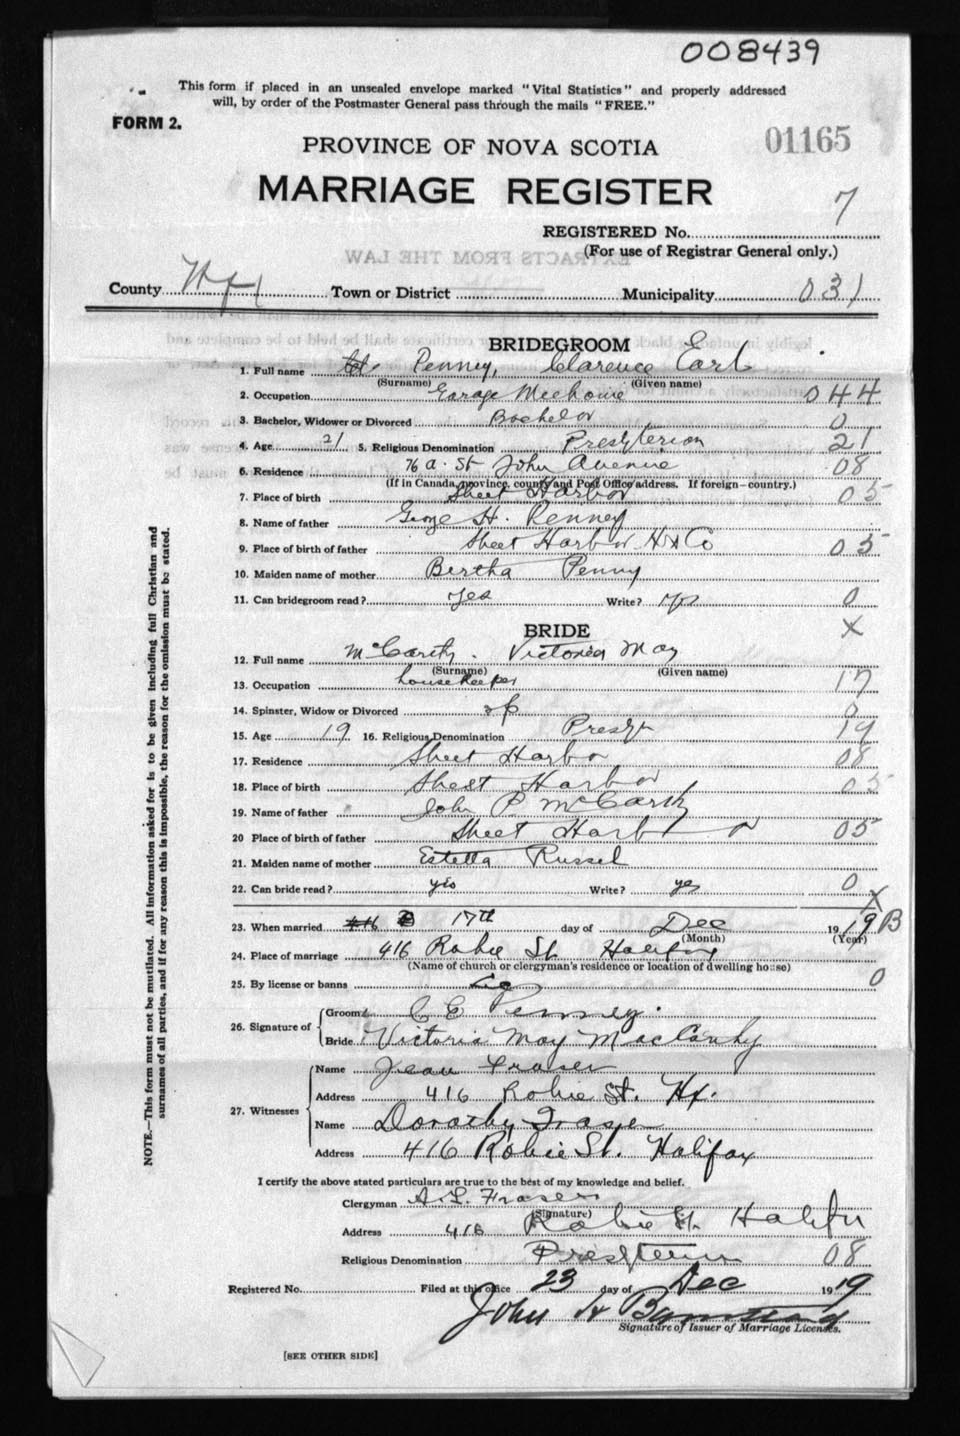 008439
This form if placed in an unsealed envelope marked "Vital Statistics" and properly addressed
will, by order of the Postmaster General pass through the mails "FREE."
FORM 2.
01165
PROVINCE OF NOVA SCOTIA
MARRIAGE REGISTER
REGISTERED No. 7
(For use of Registrar General only.)
EXTRACTS FROM THE LAW
County Hfx Town or District Municipality 031
BRIDEGROOM
1. Full name Penney, Clarence Earl
(Surname) (Given name)
2. Occupation Garage Mechanic 044
3. Bachelor, Widower or Divorced Bachelor 0
4. Age 21 5. Religious Denomination Presbyterian 21
6. Residence 76 a. St John Avenue 08
(If in Canada, province, county and Post Office address. If foreign—country.)
7. Place of birth Sheet Harbor 05
8. Name of father George H. Penney
9. Place of birth of father Sheet Harbor Hx Co 05
10. Maiden name of mother Bertha Penny
11. Can bridegroom read? yes Write? yes 0
BRIDE X
12. Full name McCarthy. Victoria May
(Surname) (Given name)
13. Occupation housekeeper 17
14. Spinster, Widow or Divorced sp 0
15. Age 19 16. Religious Denomination Presby 19
17. Residence Sheet Harbor 08
18. Place of birth Sheet Harbor 05
19. Name of father John P McCarthy
20 Place of birth of father Sheet Harbor 05
21. Maiden name of mother Estella Russel
22. Can bride read? yes Write? yes 0
X
23. When married 17th day of Dec 1919 B
(Month) (Year)
24. Place of marriage 416 Robie St. Halifax
(Name of church or clergyman's residence or location of dwelling house)
25. By license or banns Lic 0
26. Signature of Groom C E Penney.
Bride Victoria May MacCarthy
27. Witnesses Name Jean Fraser
Address 416 Robie St. Hx.
Name Dorothy Fraser
Address 416 Robie St. Halifax
I certify the above stated particulars are true to the best of my knowledge and belief.
Clergyman A. L. Fraser
(Signature)
Address 416 Robie St. Halifax
Religious Denomination Presbyterian 08
Registered No. Filed at this office 23 day of Dec 1919
John H
Signature of Issuer of Marriage Licenses.
[SEE OTHER SIDE]
NOTE.—This form must not be mutilated. All information asked for is to be given including full Christian and
surnames of all parties, and if for any reason this is impossible, the reason for the omission must be stated.